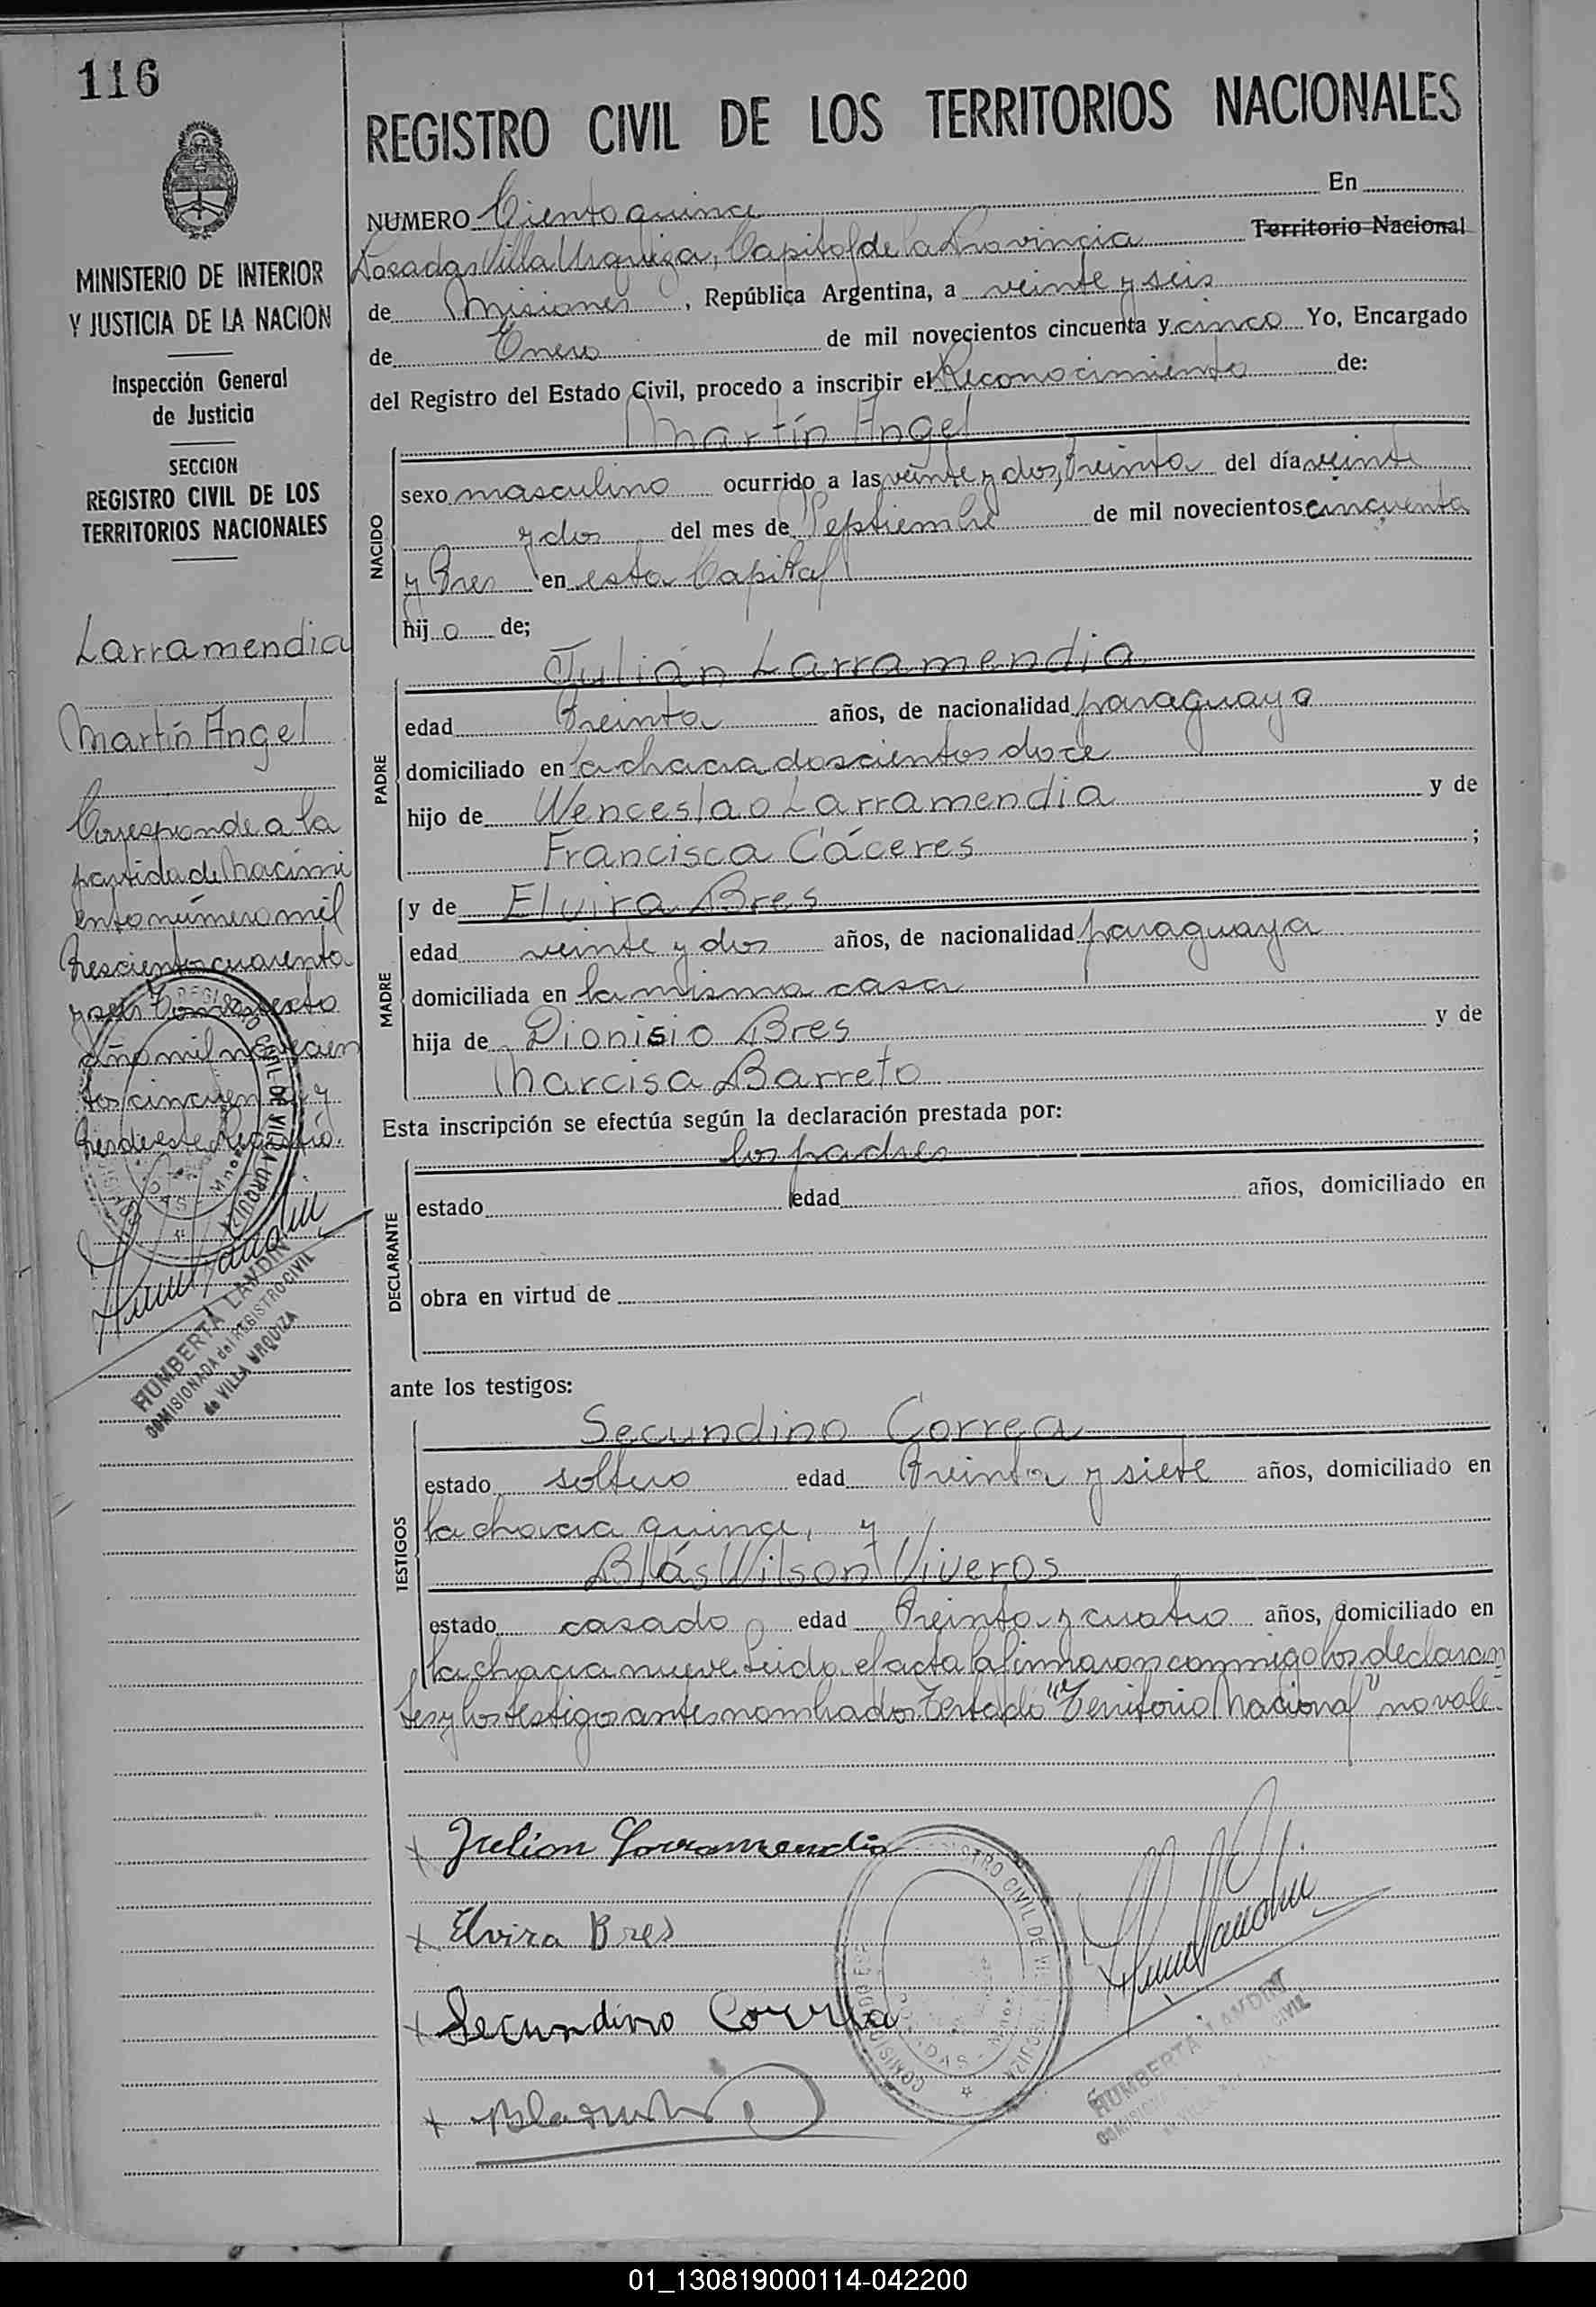 116
REGISTRO CIVIL DE LOS TERRITORIOS NACIONALES
MINISTERIO DE INTERIOR
Y JUSTICIA DE LA NACION
Inspección General
de Justicia
SECCION
REGISTRO CIVIL DE LOS
TERRITORIOS NACIONALES
Larramendia
Martín Angel
Corresponde a la
partida de Nacimi
ento número mil
trescientos cuarenta
y seis Tomo
año mil novecien
tos cincuenta y
tres de este Registro.
HUMBERTA LANDIN
COMISIONADA del REGISTRO CIVIL
de VILLA URQUIZA
NUMERO Ciento quince En
Posadas Villa Urquiza, Capital de la Provincia Territorio Nacional
de Misiones, República Argentina, a veinte y seis
de Enero de mil novecientos cincuenta y cinco Yo, Encargado
del Registro del Estado Civil, procedo a inscribir el Reconocimiento de:
Martín Angel
NACIDO
sexo masculino ocurrido a las veinte y dos, treinta del día veinte
y dos del mes de Septiembre de mil novecientos cincuenta
y tres en esta Capital
hijo de;
Julián Larramendia
PADRE
edad treinta años, de nacionalidad paraguaya
domiciliado en la chacra doscientos doce
hijo de Wenceslao Larramendia y de
Francisca Cáceres ;
MADRE
y de Elvira Bres
edad veinte y dos años, de nacionalidad paraguaya
domiciliada en la misma casa
hija de Dionisio Bres y de
Narcisa Barreto
Esta inscripción se efectúa según la declaración prestada por:
los padres
DECLARANTE
estado edad años, domiciliado en
obra en virtud de
ante los testigos:
Secundino Correa
TESTIGOS
estado soltero edad treinta y siete años, domiciliado en
la chacra quince, y
Blás Wilson Viveros
estado casado edad treinta y cuatro años, domiciliado en
la chacra nueve. Leida el acta la firmaron conmigo los declaran
tes y los testigos antes nombrados. Testado "Territorio Nacional" no vale.
x Julian Larramendia
x Elvira Bres
x Secundino Correa
x
HUMBERTA LANDIN
01_130819000114-042200